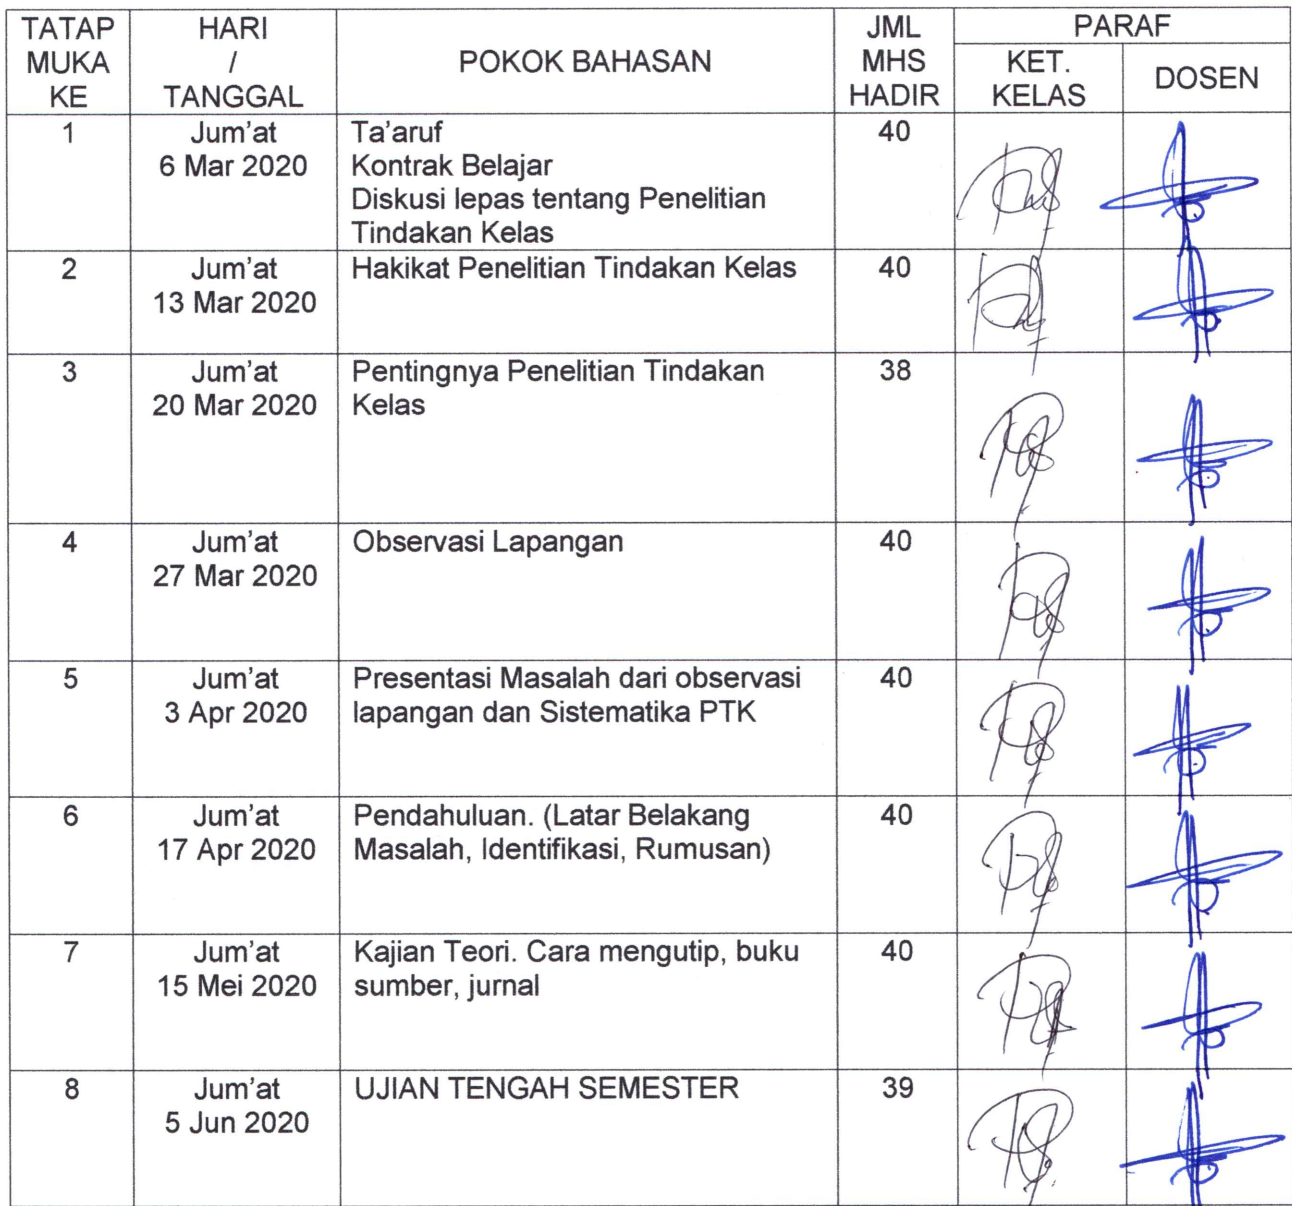 TATAP MUKA KE
HARI / TANGGAL
POKOK BAHASAN
JML MHS HADIR
PARAF
KET. KELAS
DOSEN
1
Jum'at
6 Mar 2020
Ta'aruf
Kontrak Belajar
Diskusi lepas tentang Penelitian
Tindakan Kelas
40
2
Jum'at
13 Mar 2020
Hakikat Penelitian Tindakan Kelas
40
3
Jum'at
20 Mar 2020
Pentingnya Penelitian Tindakan
Kelas
38
4
Jum'at
27 Mar 2020
Observasi Lapangan
40
5
Jum'at
3 Apr 2020
Presentasi Masalah dari observasi
lapangan dan Sistematika PTK
40
6
Jum'at
17 Apr 2020
Pendahuluan. (Latar Belakang
Masalah, Identifikasi, Rumusan)
40
7
Jum'at
15 Mei 2020
Kajian Teori. Cara mengutip, buku
sumber, jurnal
40
8
Jum'at
5 Jun 2020
UJIAN TENGAH SEMESTER
39